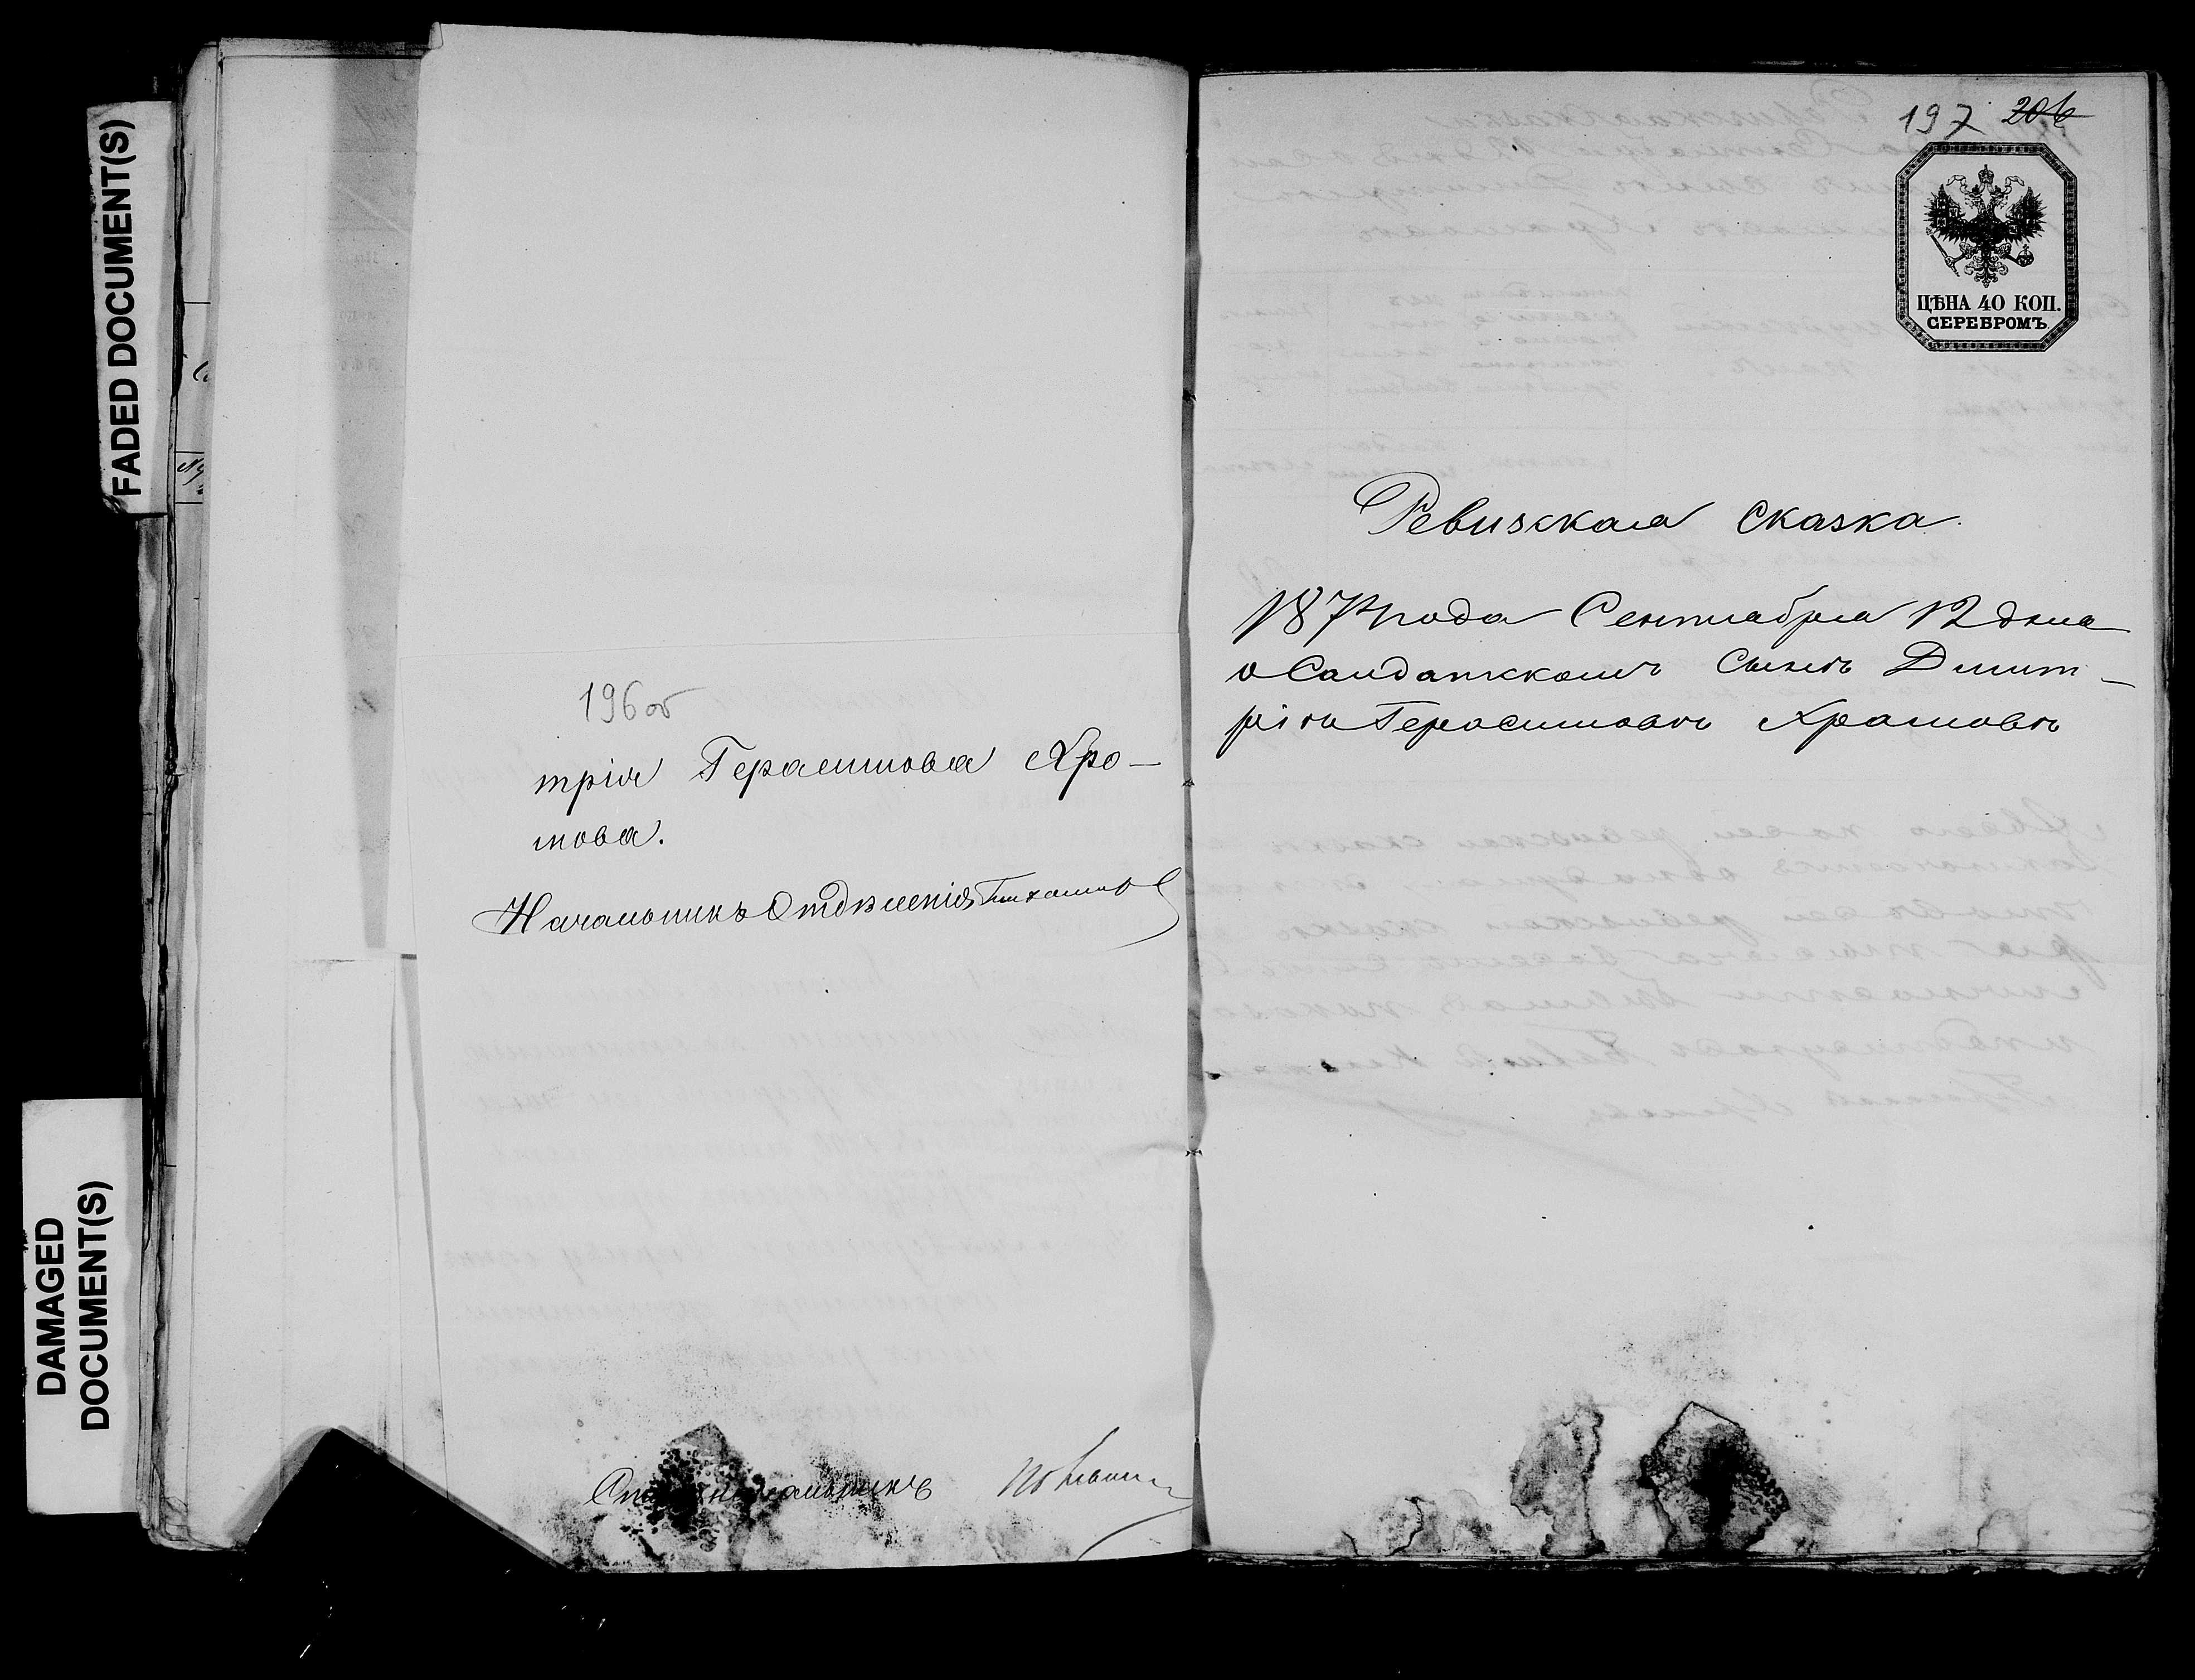 FADED DOCUMENT(S)
DAMAGED
DOCUMENT(S)
196 об
трія Герасимова Хро-
мова.
Начальникъ Отдѣленія
197 206
ЦѢНА 40 КОП.
СЕРЕБРОМЪ
Ревизская сказка.
187 года Сентября 12 дня
о Салдатскомъ сынѣ Дмит-
ріѣ Герасимовѣ Храмовѣ